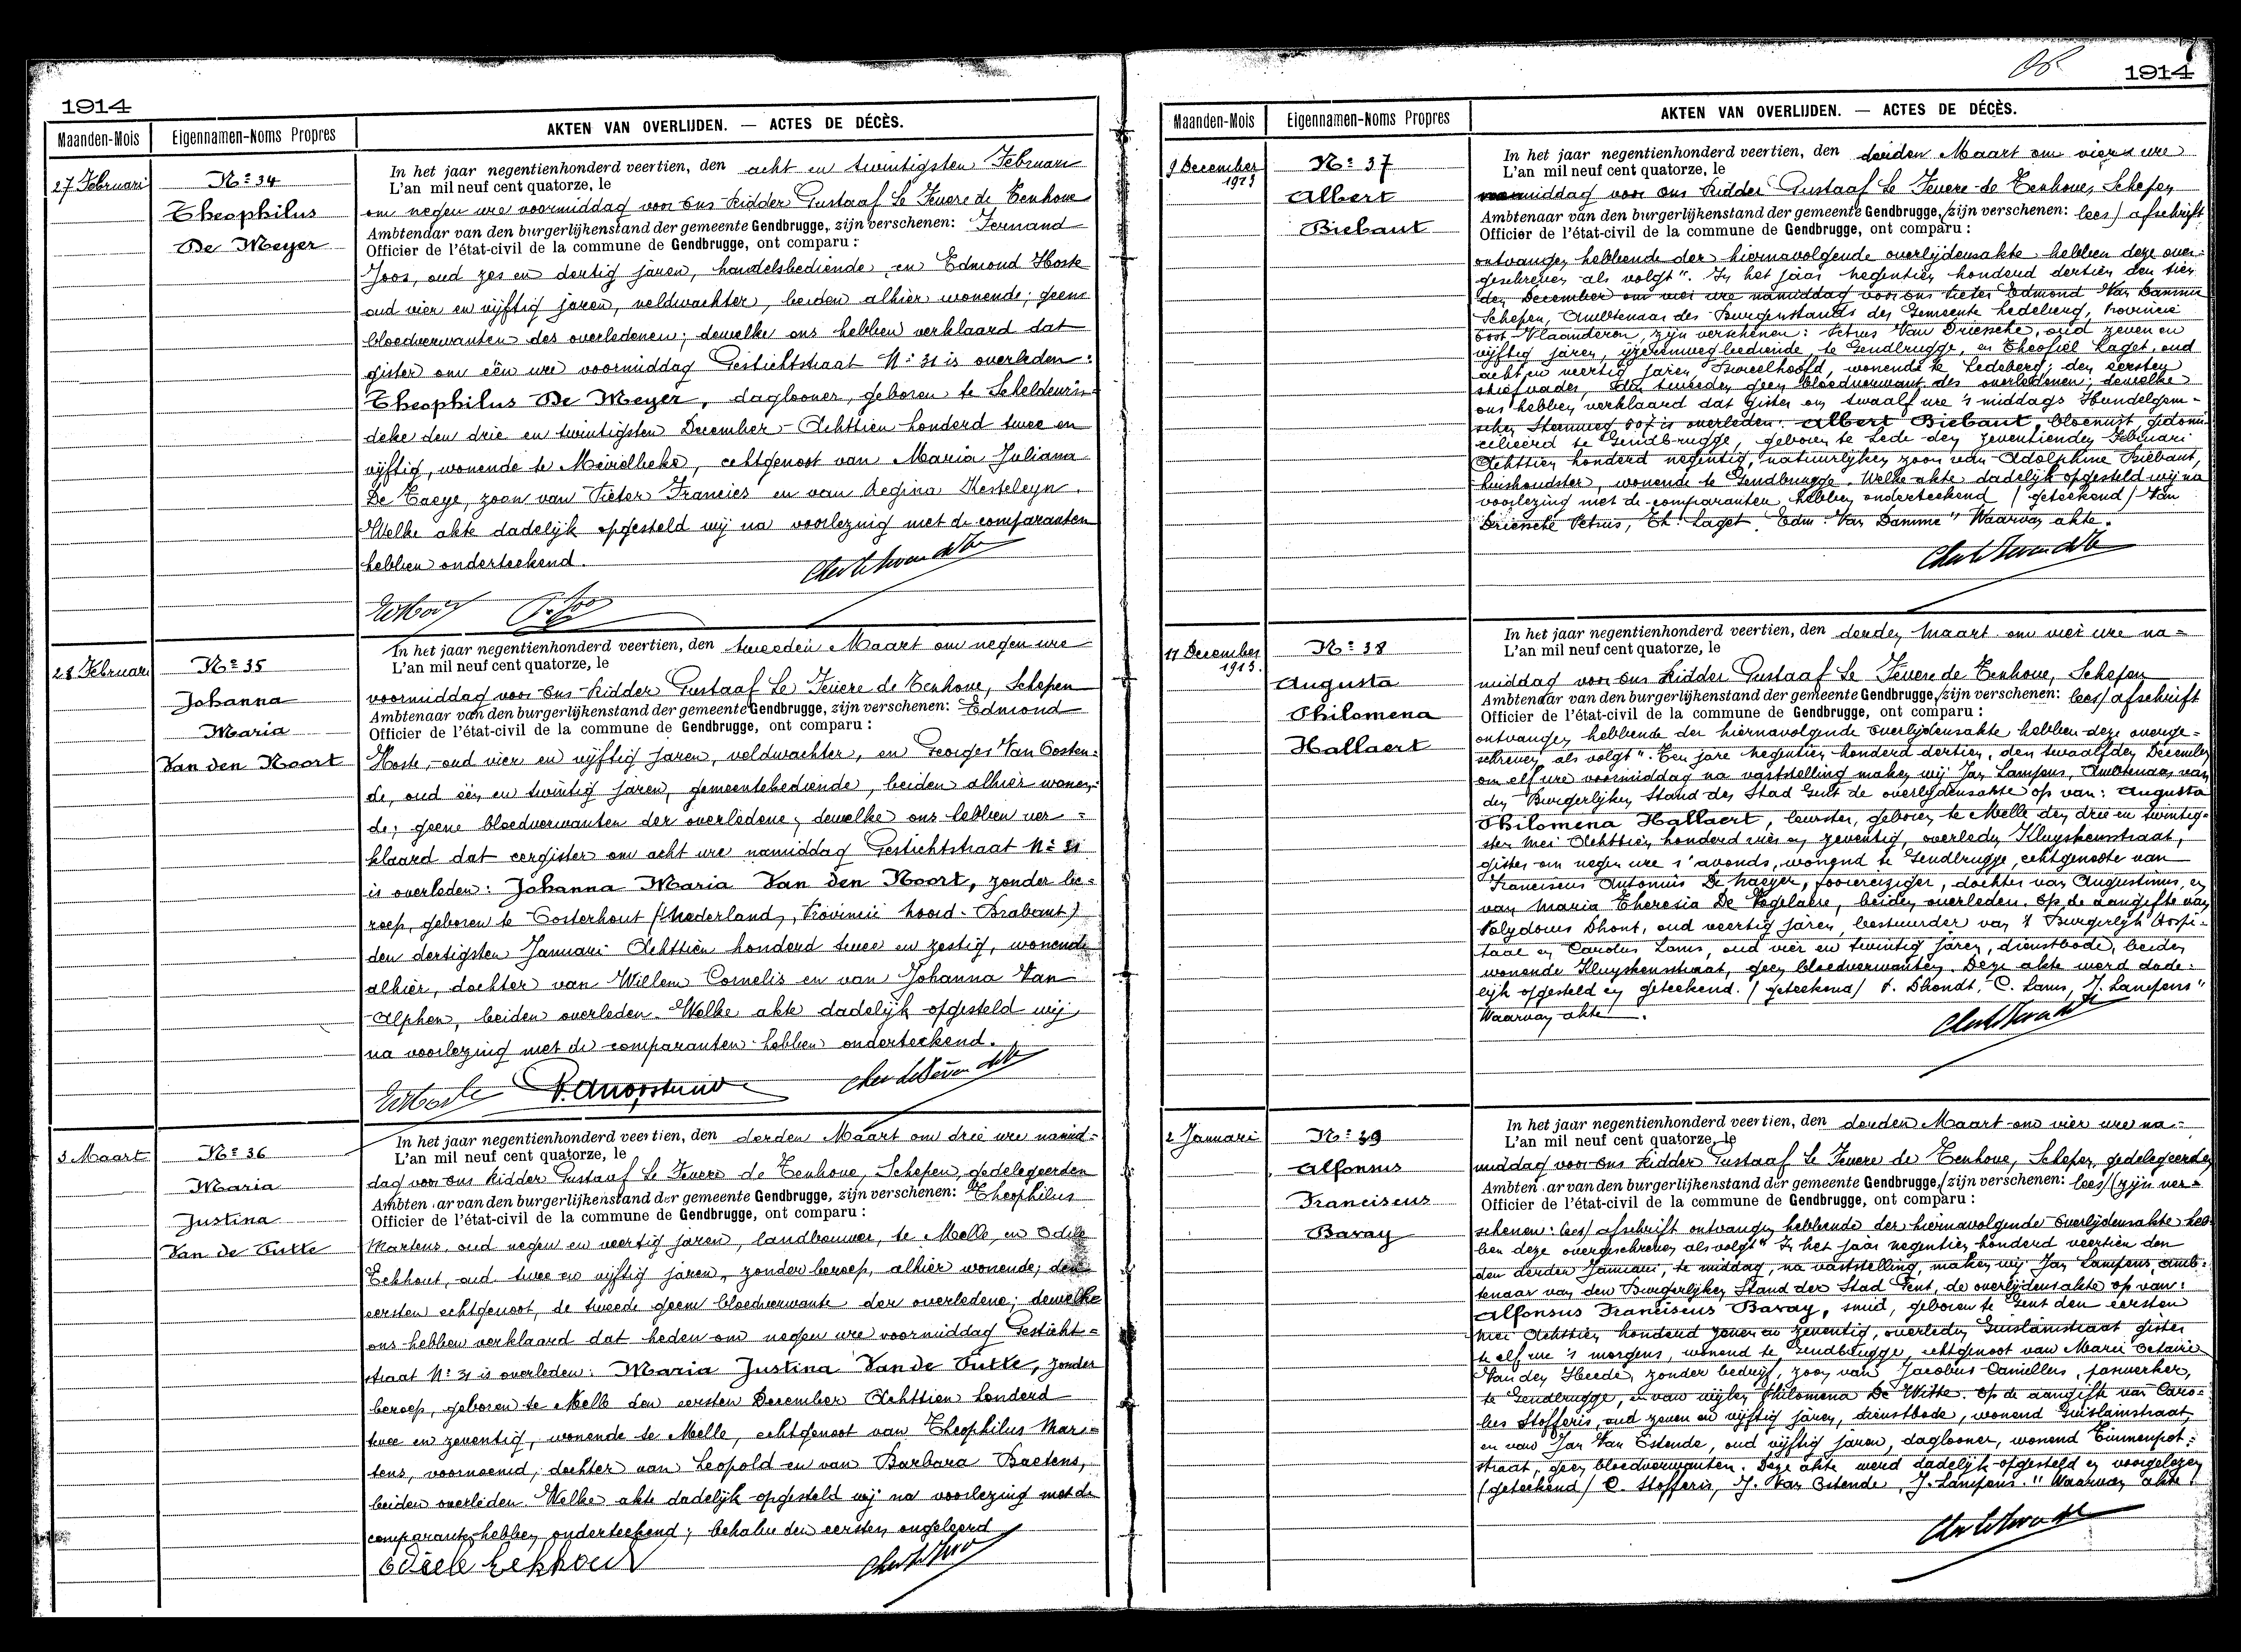 1914
Maanden-Mois
Eigennamen-Noms Propres
AKTEN VAN OVERLIJDEN. — ACTES DE DÉCÈS.
27 Februari
Nº 34
Theophilus
De Meyer
In het jaar negentienhonderd veertien, den acht en twintigsten Februari
L'an mil neuf cent quatorze, le
om negen ure voormiddag voor Ons Ridder Gustaaf Le Fevere de Tenhove
Ambtenaar van den burgerlijkenstand der gemeente Gendbrugge, zijn verschenen: Fernand
Officier de l'état-civil de la commune de Gendbrugge, ont comparu :
Joos, oud zes en dertig jaren, handelsbediende, en Edmond Hoste
oud vier en vijftig jaren, veldwachter, beiden alhier wonende; geene
bloedverwanten des overledenen; dewelke ons hebben verklaard dat
gister om één ure voormiddag Gestichtstraat Nº 31 is overleden:
Theophilus De Meyer, daglooner, geboren te Scheldewin-
deke den drie en twintigsten December Achttien honderd twee en
vijftig, wonende te Meirelbeke, echtgenoot van Maria Juliana
De Taeye, zoon van Pieter Francies en van Regina Kesteleyn.
Welke akte dadelijk opgesteld wij na voorlezing met de comparanten
hebben onderteekend.
28 Februari
Nº 35
Johanna
Maria
Van den Noort
In het jaar negentienhonderd veertien, den tweeden Maart om negen ure
L'an mil neuf cent quatorze, le
voormiddag voor Ons Ridder Gustaaf Le Fevere de Tenhove, Schepen
Ambtenaar van den burgerlijkenstand der gemeente Gendbrugge, zijn verschenen: Edmond
Officier de l'état-civil de la commune de Gendbrugge, ont comparu :
Hoste, oud vier en vijftig jaren, veldwachter, en Georges Van Oosten-
de, oud één en twintig jaren, gemeentebediende, beiden alhier wonen-
de; geene bloedverwanten der overledene; dewelke ons hebben ver =
klaard dat eergister om acht ure namiddag Gestichtstraat Nº 31
is overleden: Johanna Maria Van den Noort, zonder be-
roep, geboren te Oosterhout (Nederland, Provincie Noord-Brabant)
den dertigsten Januari Achttien honderd twee en zestig, wonende
alhier, dochter van Willem Cornelis en van Johanna Van
Alphen, beiden overleden. Welke akte dadelijk opgesteld wij
na voorlezing met de comparanten hebben onderteekend.
3 Maart
Nº 36
Maria
Justina
Van de Putte
In het jaar negentienhonderd veertien, den derden Maart om drie ure namid-
L'an mil neuf cent quatorze, le
dag voor Ons Ridder Gustaaf Le Fevere de Tenhove, Schepen, gedelegeerden
Ambten.ar van den burgerlijkenstand der gemeente Gendbrugge, zijn verschenen: Theophilus
Officier de l'état-civil de la commune de Gendbrugge, ont comparu :
Martens, oud negen en veertig jaren, landbouwer, te Melle, en Odile
Eekhout, oud twee en vijftig jaren, zonder beroep, alhier wonende; den
eersten echtgenoot, de tweede geene bloedverwante der overledene; dewelke
ons hebben verklaard dat heden om negen ure voormiddag Gesticht-
straat Nº 31 is overleden: Maria Justina Van de Putte, zonder
beroep, geboren te Melle den eersten December Achttien honderd
twee en zeventig, wonende te Melle, echtgenoot van Theophilus Mar-
tens, voornoemd, dochter van Leopold en van Barbara Baetens,
beiden overleden. Welke akte dadelijk opgesteld wij na voorlezing met de
comparante hebben onderteekend; behalve den eersten ongeleerd
Odiele Eekhout
1914
Maanden-Mois
Eigennamen-Noms Propres
AKTEN VAN OVERLIJDEN. — ACTES DE DÉCÈS.
9 December
1913
Nº 37
Albert
Biebaut
In het jaar negentienhonderd veertien, den derden Maart om vier ure
L'an mil neuf cent quatorze, le
middag voor Ons Ridder Gustaaf Le Fevere de Tenhove, Schepen
Ambtenaar van den burgerlijkenstand der gemeente Gendbrugge, (zijn verschenen: lees) afschrift
Officier de l'état-civil de la commune de Gendbrugge, ont comparu :
ontvangen hebbende der hiernavolgende overlijdensakte hebben deze over-
geschreven als volgt". In het jaar negentien honderd dertien den tien
den December om vier ure namiddag voor ons Pieter Edmond Van Damme
Schepen, Ambtenaar des Burgerstands der Gemeente Ledeberg, Provincie
Oost-Vlaanderen, zijn verschenen: Petrus Van Driessche, oud zeven en
vijftig jaren, ijzerenwegbediende, te Gendbrugge, en Theofiel Laget, oud
acht en veertig jaren, wonende te Ledeberg; den eersten
stiefvader, den tweeden geen bloedverwant des overledenen; dewelke
ons hebben verklaard dat gister om twaalf ure 's middags Hundelgem-
schen Steenweg 607 is overleden: Albert Biebaut, bloemist, gedomi-
cilieerd te Gendbrugge, geboren te Lede den zeventienden Februari
Achttien honderd negentig, natuurlijken zoon van Adolphine Biebaut,
huishoudster, wonende te Gendbrugge. Welke akte dadelijk opgesteld wij na
voorlezing met de comparanten hebben onderteekend (geteekend) Van
Driessche Petrus, Th. Laget, Edm. Van Damme" Waarvan akte.
11 December
1913.
Nº 38
Augusta
Philomena
Hallaert
In het jaar negentienhonderd veertien, den derden Maart om vier ure na =
L'an mil neuf cent quatorze, le
middag voor Ons Ridder Gustaaf Le Fevere de Tenhove, Schepen
Ambtenaar van den burgerlijkenstand der gemeente Gendbrugge, (zijn verschenen: lees) afschrift
Officier de l'état-civil de la commune de Gendbrugge, ont comparu :
ontvangen hebbende der hiernavolgende overlijdensakte hebben deze overge-
schreven als volgt". Ten jare negentien honderd dertien, den twaalfden December
om elf ure voormiddag na vaststelling maken wij Jan Lampens, Ambtenaar van
den Burgerlijken Stand der Stad Gent de overlijdensakte op van: Augusta
Philomena Hallaert, leurster, geboren te Melle den drie en twintig-
sten Mei Achttien honderd vier en zeventig, overleden Kluyskensstraat,
gister om negen ure s'avonds, wonend te Gendbrugge, echtgenoote van
Franciscus Antonius De Naeyer, foorreiziger, dochter van Augustinus, en
van Maria Theresia De Vogelaere, beiden overleden. Op de aangifte van
Polydorus Dhont, oud veertig jaren, bestuurder van 't Burgerlijk Hospi-
taal en Carolus Lams, oud vier en twintig jaren, dienstbode, beiden
wonende Kluyskensstraat, geen bloedverwanten. Deze akte werd dade-
lijk opgesteld en geteekend. (geteekend) P. Dhondt, C. Lams, J. Lampens"
Waarvan akte.
2 Januari
Nº 39
Alfonsus
Franciscus
Bavay
In het jaar negentienhonderd veertien, den derden Maart om vier ure na-
L'an mil neuf cent quatorze, le
middag voor Ons Ridder Gustaaf Le Fevere de Tenhove, Schepen, gedelegeerden
Ambten.ar van den burgerlijkenstand der gemeente Gendbrugge, (zijn verschenen: lees) (zijn ver-
Officier de l'état-civil de la commune de Gendbrugge, ont comparu :
schenen: lees) afschrift ontvangen hebbende der hiernavolgende overlijdensakte heb-
ben deze overgeschreven als volgt" In het jaar negentien honderd veertien den
den derden Januari, te middag, na vaststelling, maken wij Jan Lampens, amb-
tenaar van den Burgerlijken Stand der Stad Gent, de overlijdensakte op van:
Alfonsus Franciscus Bavay, smid, geboren te Gent den eersten
Mei Achttien honderd zeven en zeventig, overleden Guislainstraat gister
te elf ure 's morgens, wonend te Gendbrugge, echtgenoot van Marie Octavie
Van den Heede, zonder bedrijf, zoon van Jacobus Camillus, paswerker,
te Gendbrugge, en van wijlen Philomena De Witte. Op de aangifte van Caro-
lus Stofferis, oud zeven en vijftig jaren, dienstbode, wonend Guislainstraat,
en van Jan Van Ostende, oud vijftig jaren, daglooner, wonend Tinnenpot-
straat, geen bloedverwanten. Deze akte werd dadelijk opgesteld en voorgelezen
(geteekend) C. Stofferis, J. Van Ostende, J. Lampens." Waarvan akte.